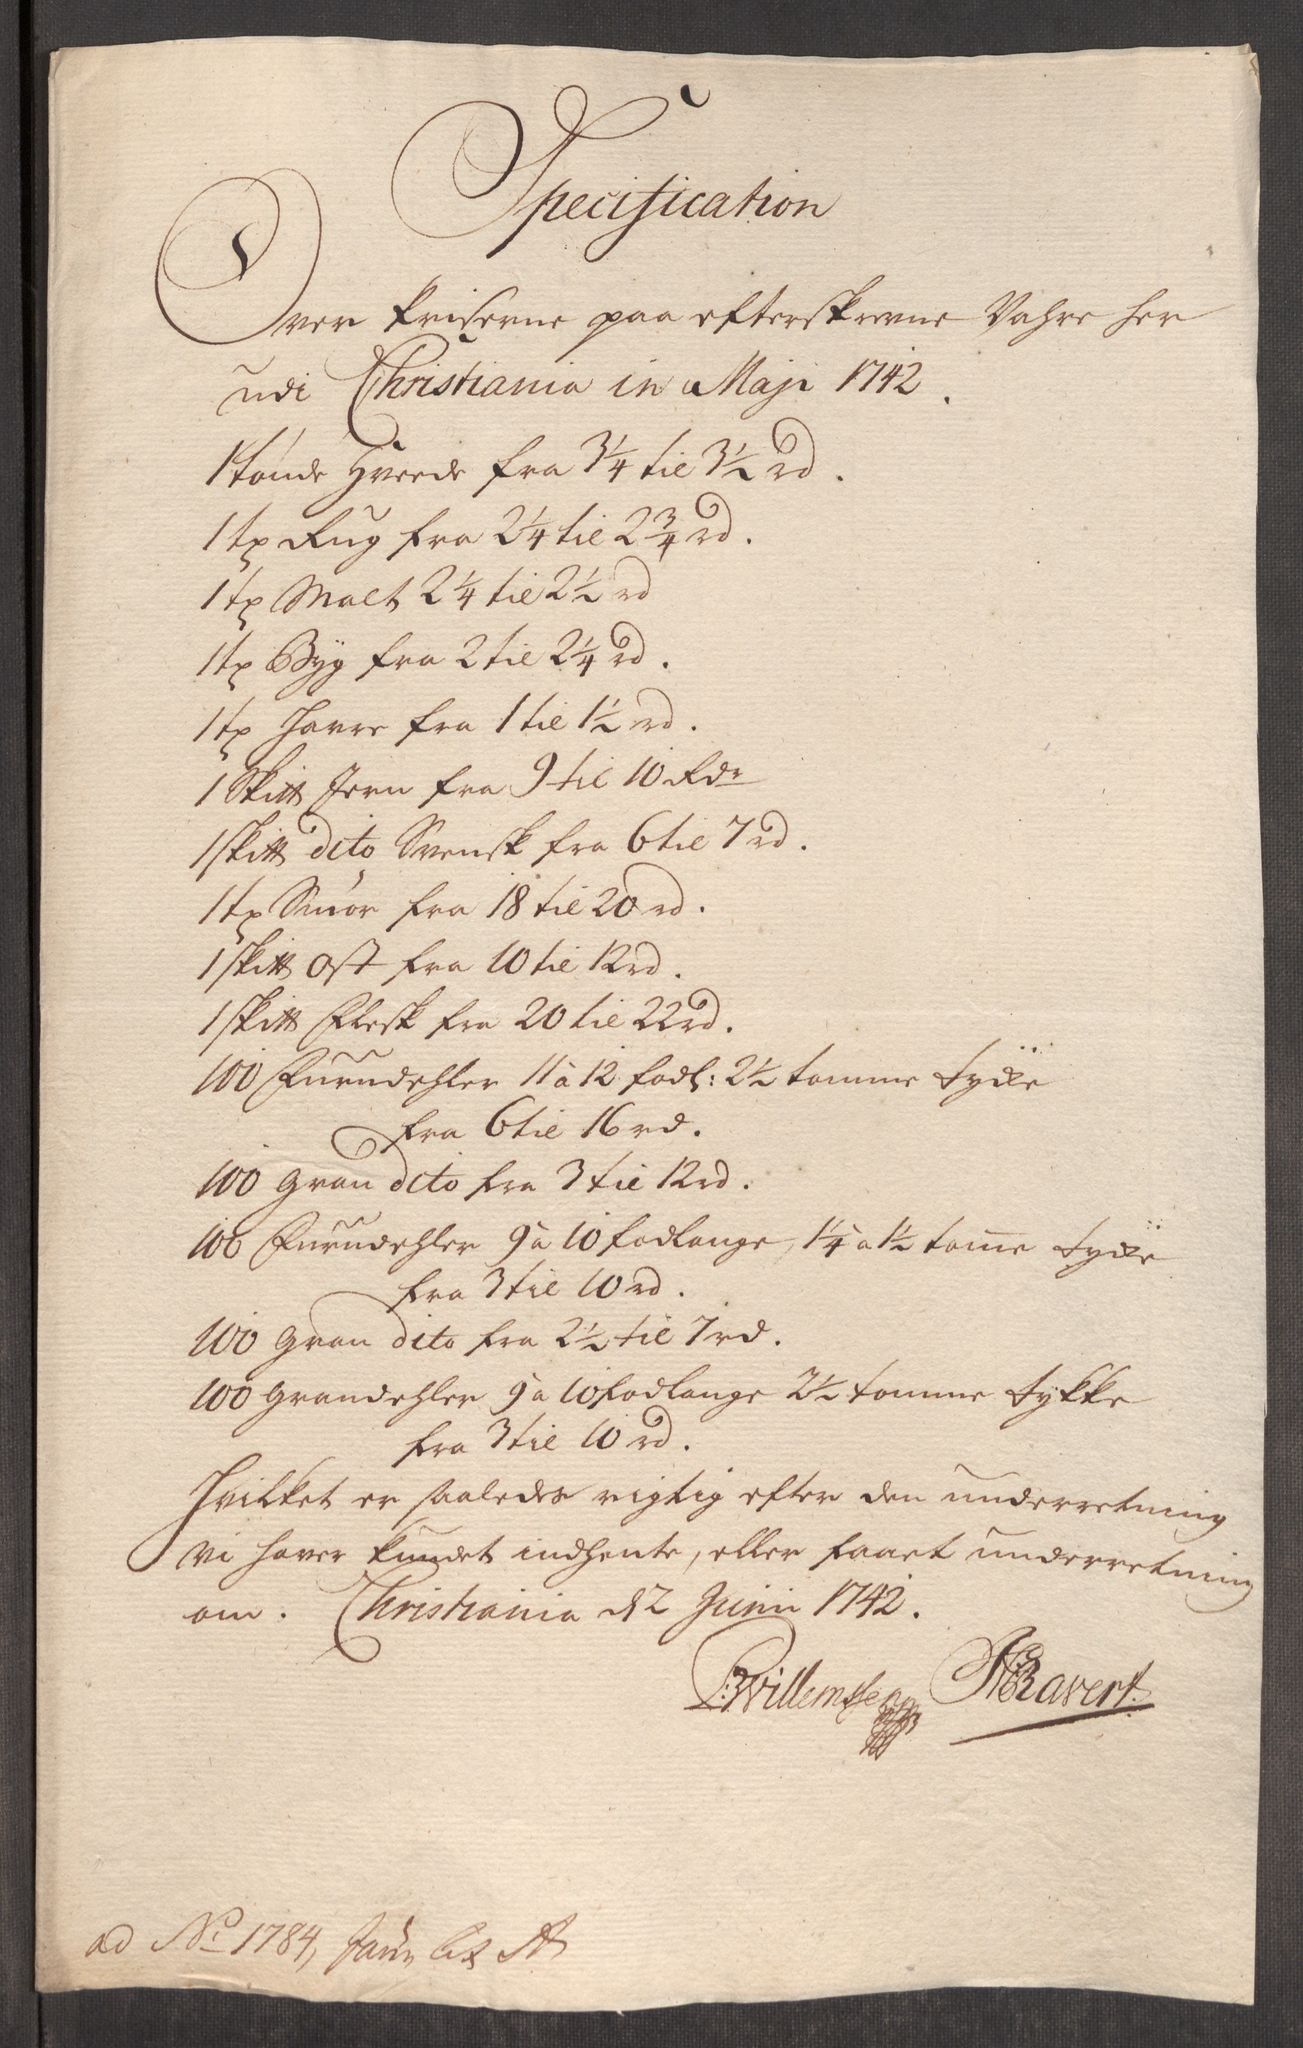 Specification
Over Priserne paa efterskrevne Vahre her
udi Christiania in Maji 1742.
1 tønde Hveede fra 3 1/4 til 3 1/2 rd.
1 tø Rug fra 2 1/4 til 2 3/4 rd.
1 tø Malt 2 1/4 til 2 1/2 rd
1 tø Byg fra 2 til 2 1/4 rd.
1 tø Havre fra 1 til 1 1/2 rd.
1 Skitt Jern fra 9 til 10 Rdr
1 skitt dito Svensk fra 6 til 7 rd.
1 tø Smør fra 18 til 20 rd.
1 skitt Ost fra 10 til 12 rd.
1 skitt Flesk fra 20 til 22 rd.
100 Furudehler 11 à 12 fodl: 2 1/2 tomme tycke
fra 6 til 16 rd.
100 Gran dito fra 3 til 12 rd.
100 Furudehler 9 à 10 fodlange, 1 1/4 à 1 1/2 tome tycke
fra 3 til 10 rd.
100 Gran dito fra 2 1/2 til 7 rd.
100 Grandehler 9 à 10 fodlange 2 1/2 tomme tykke
fra 3 til 10 rd.
Hvilket er saaledes rigtig efter den underretning
vi haver kundet indhente, eller faaet underretning
om. Christiania d 2 Junii 1742.
Willemsen Ravert.
ad No 1784, Lit A